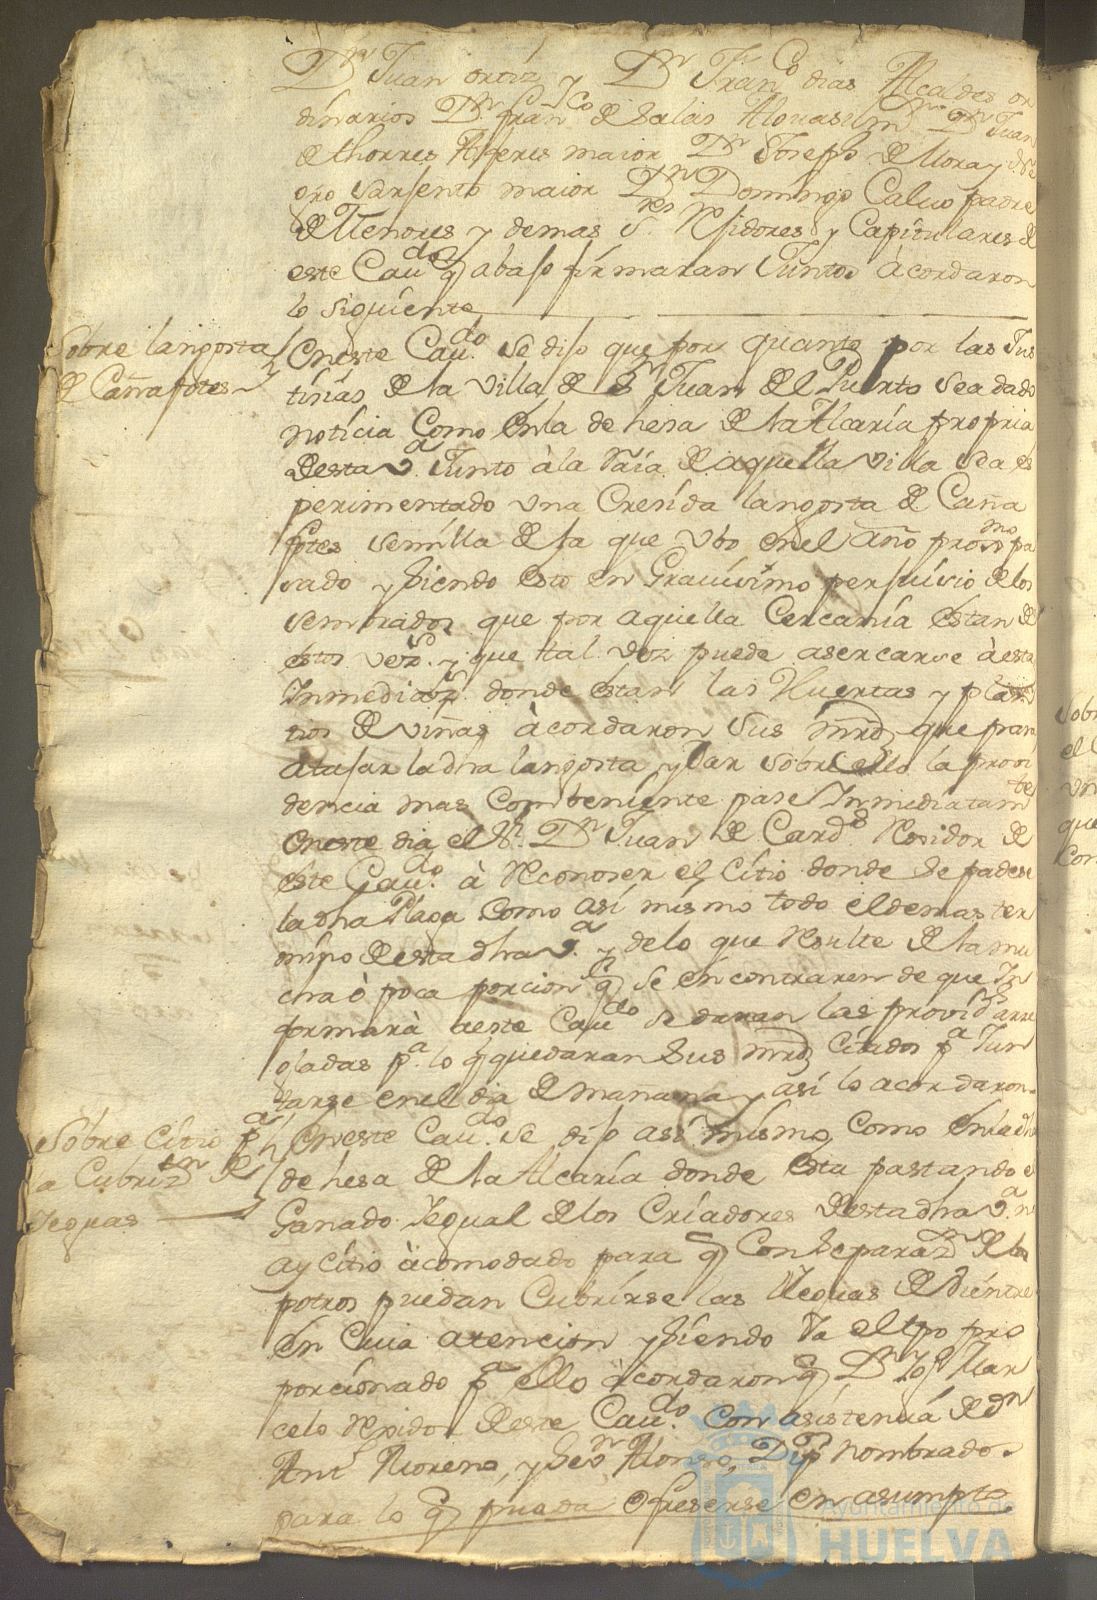 Dn Juan ortiz y Dn Franco dias Alcaldes or
dinarios Dn Franco de Salas Alguasil mr Dn Juan
de thorres Alferes maior Dn Joseph de Mora y
oro sarjento maior Dn Domingo Calvo padre
de Menores y demas Sres Rejidores y Capitulares de
este Cavdo q abajo firmaran Juntos acordaron
lo siguiente
Sobre langosta
de Cañafotes
Eneste Cavdo se dijo que por quanto por las Jus
tisias de la villa de Sn Juan del Puerto sea dado
notisia Como enla dehesa de la Alcaria propria
desta va Junto à la raia de aquella villa sea es
perimentado una Cresida langosta de Caña
fotes semilla de la que ubo enel año proxmo pa
sado y siendo esto en Gravisimo perjuisio delos
sembrados que por aquella Cercania estan de
estos vezs y que tal vez puede asercarse à esta
Inmediazn donde estan las Huertas y plan
tios de viñas àcordaron sus mrds que para
atajar la dha langosta y dar sobre ello la provi
dencia mas Combeniente pase Inmediatamte
eneste dia el Sr Dn Juan de Cardo Rexidor de
este Cavdo à Reconoser el Citio donde se padese
la dha Plaga Como asi mismo todo el demas ter
mino desta dha va y delo que Resulte de la mu
cha ò poca porcion q se encontraren de que In
formarà aeste Cavdo se daran las providas arre
gladas pa lo q quedaran sus mrds Citados pa Jun
tarse enel dia de mañana y asi lo acordaron
Sobre Citio pa
la Cubrizn de
Yeguas
Eneste Cavdo se dijo asi mismo Como en la dha
dehesa de la Alcaria donde esta pastando el
Ganado Yegual delos Criadores desta dha va no
ay Citio àcomodado para q Con Separazn de los
potros puedan Cubrirse las Yeguas de vientre
en Cuia atencion y siendo Ya el tpo pro
porcionado pa ello àcordaron q Dn Joseph Mar
celo Rejidor deste Cavdo Con asistencia de dn
Antt Moreno, y Alonso, Dip nombrado
para lo q pueda Ofreserse en asumpto
Sobre
el
un
que
Con
Ayuntamiento de
HUELVA